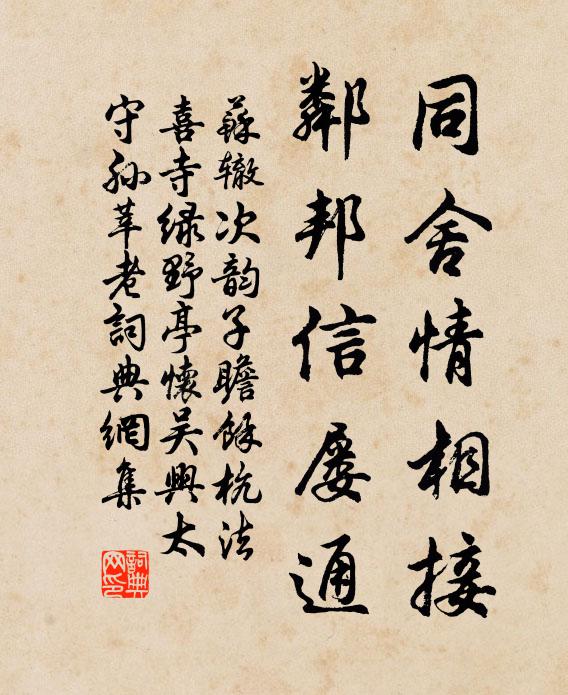 同舍情相接
鄰邦信屡通
蘇辙次韵子瞻餘杭法
喜寺绿野亭懷吴興太
守孙莘老詞典網集
詞典
网印